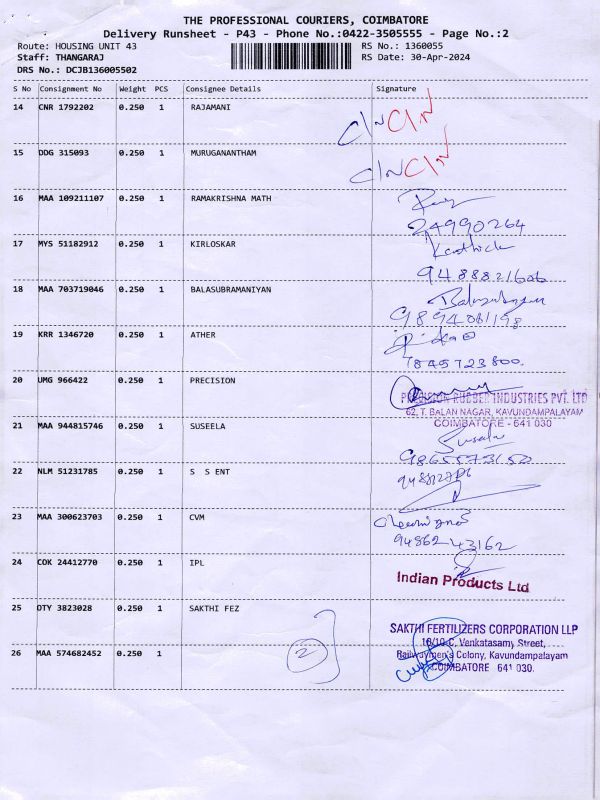 THE PROFESSIONAL COURIERS, COIMBATORE
Delivery Runsheet - P43 - Phone No.:0422-3505555 - Page No.:2
Route: HOUSING UNIT 43 RS No.: 1360055
Staff: THANGARAJ RS Date: 30-Apr-2024
DRS No.: DCJB136005502
S No Consignment No Weight PCS Consignee Details Signature
14 CNR 1792202 0.250 1 RAJAMANI
15 DDG 315093 0.250 1 MURUGANANTHAM
16 MAA 109211107 0.250 1 RAMAKRISHNA MATH
24990264
17 MYS 51182912 0.250 1 KIRLOSKAR
18 MAA 703719046 0.250 1 BALASUBRAMANIYAN
9894081198
19 KRR 1346720 0.250 1 ATHER
7845723800.
20 UMG 966422 0.250 1 PRECISION
PRECISION RUBBER INDUSTRIES PVT. LTD
62, T. BALAN NAGAR, KAVUNDAMPALAYAM
COIMBATORE - 641 030
21 MAA 944815746 0.250 1 SUSEELA
Susela
22 NLM 51231785 0.250 1 S S ENT
23 MAA 300623703 0.250 1 CVM
9486243162
24 COK 24412770 0.250 1 IPL
Indian Products Ltd
25 OTY 3823028 0.250 1 SAKTHI FEZ
SAKTHI FERTILIZERS CORPORATION LLP
Venkatasamy Street,
26 MAA 574682452 0.250 1 2
Railwaymen's Colony, Kavundampalayam
COIMBATORE 641 030.